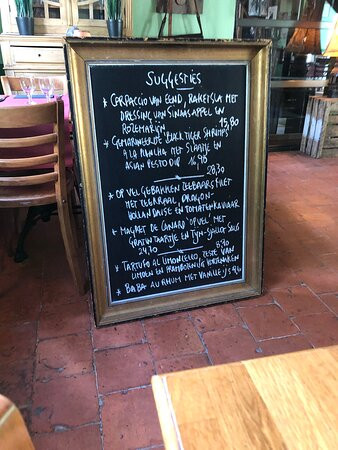 SUGGESTIES
* CARPACCIO VAN EEND, RAKERSLA MET
DRESSING VAN SINAASAPPEL EN
ROZEMARIJN 15,80
* GEMARINEERDE BLACK TIGER SHRIMPS
A LA PLANCHA MET SLAATJE EN
ASIAN PESTO DIP 16,90
28,30
* OP VEL GEBAKKEN ZEEBAARSFILET
MET ZEEKRAAL, DRAGON-
HOLLANDAISE EN TOMATENKAVIAAR
* MAGRET DE CANARD "OP VEL" MET
GRATIN TAARTJE EN TIJM-SJALOT SAUS
24,30
8,90
* TARTUFO AL LIMONCELLO, ZESTE VAN
LIMOEN EN FRAMBOZEN
* BABA AU RHUM MET VANILLE-IJS